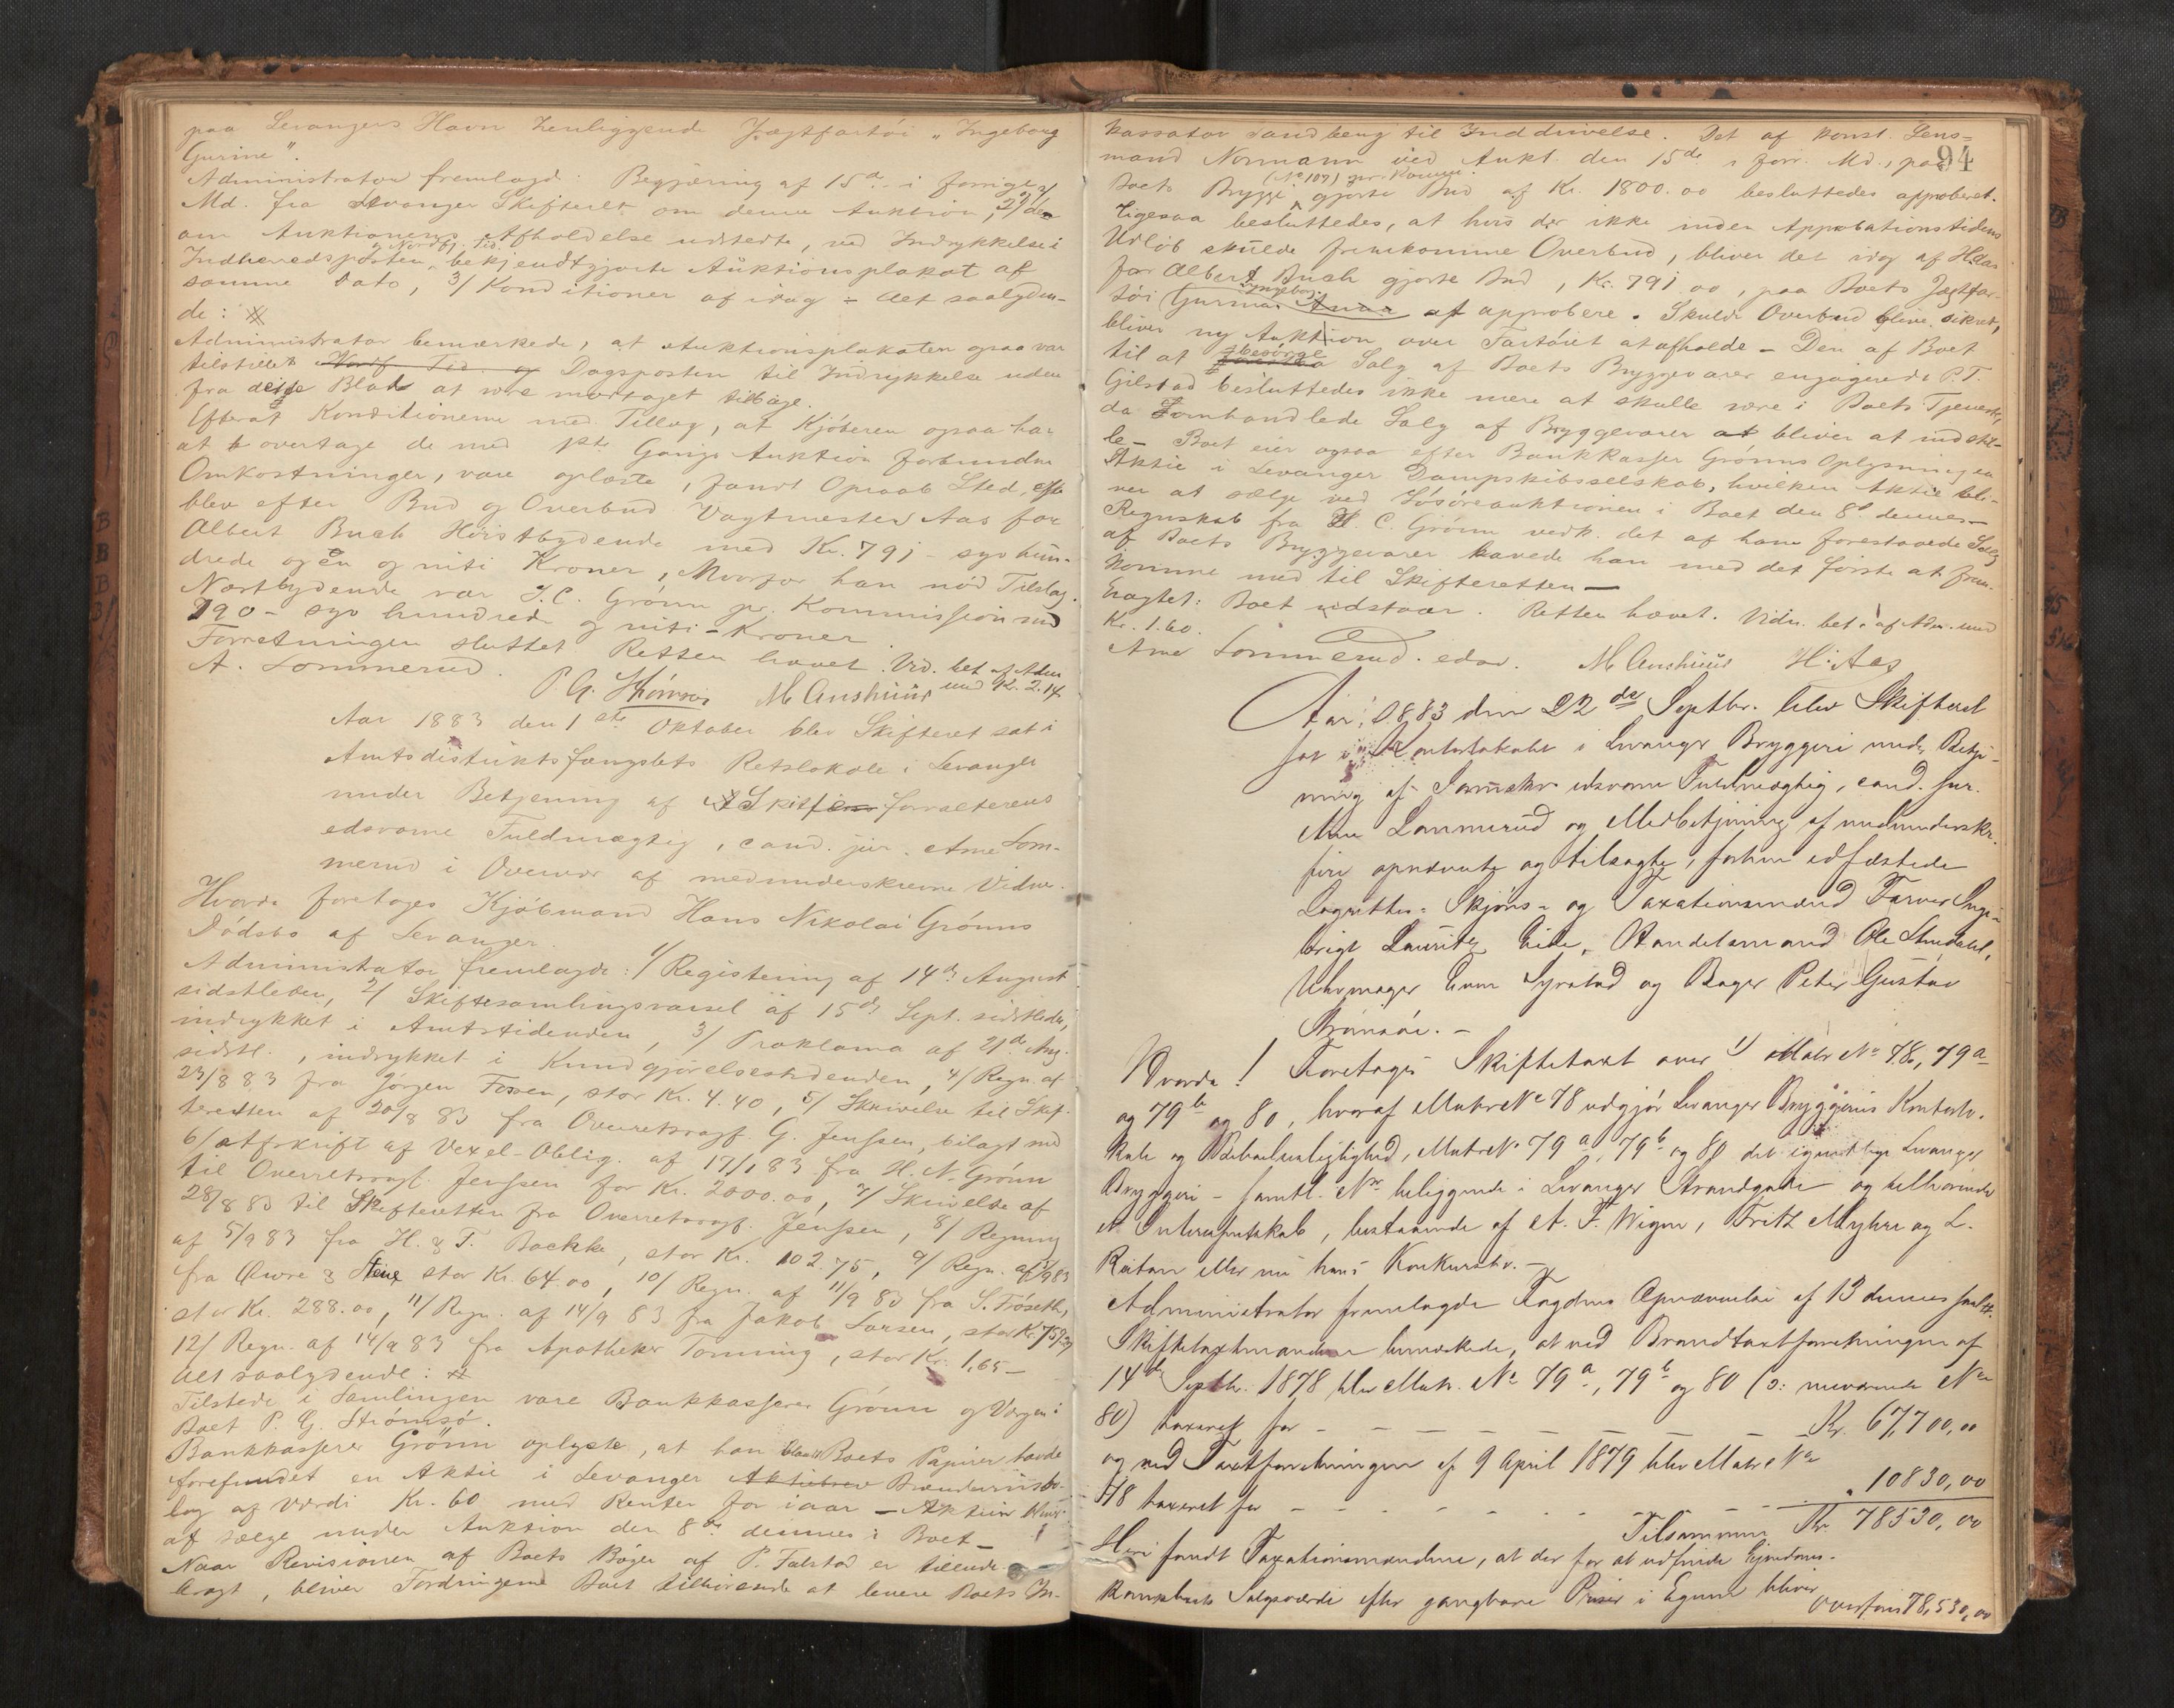 paa Levangers Havn henliggende Jægtfartöi "Ingeborg
Gurine".
Administrator fremlagd: Begjæring af 15de i forrige
Md. fra Levanger Skifteret om denne Auktion, 2/ den
om Auktionens Afholdelse udstedte, ved Indrykkelse i
og Nordf. Tid.
Indherredsposten bekjendtgjorte Auktionsplakat af
samme Dato, 3/ Konditioner af idag - det saalyden-
de:
Administrator bemærkede, at Auktionsplakaten ogsaa var
tilstillet Nordf. Tid. og Dagsposten til Indrykkelse uden
fra dette Blad at være modtaget tilbage.
Efterat Konditionerne med Tillæg, at Kjöberen ogsaa har
at overtage de med 1ste Gangs Auktion forbundne
Omkostninger, vare oplæste, fandt Opraab Sted, og
blev efter Bud og Overbud Vagtmester Aas for
Albert Buch Höistbydende med Kr. 791 - syv hun-
drede og en og niti Kroner, hvorfor han nöd Tilslag.
Næstbydende var J. C. Grönn pr. Kommission med
790 - syv hundrede og niti - Kroner
Forretningen sluttet. Retten hævet. Vid. bet. af Adm.
med Kr. 2.14.
A. Sommerud. P. G. Strömsö M Anshuus
Aar 1883 den 1ste Oktober blev Skifteret sat i
Amtsdistriktsfængslets Retslokale i Levanger
under Betjening af Skifteforvalterens
edsvorne Fuldmægtig, cand. jur. Arne Som-
merud i Overvær af medunderskrevne Vidner.
Hvorda foretoges Kjöbmand Hans Nikolai Grönns
Dödsbo af Levanger.
Administrator fremlagde: 1/ Registrering af 14de August
sidstleden, 2/ Skiftesamlingsvarsel af 15de Sept. sidstleden,
indrykket i Amtstidenden, 3/ Proklama af 21de Aug.
sidstl., indrykket i Kundgjörelsestidenden, 4/ Regn. af
23/8 83 fra Jörgen Fossen, stor Kr. 4.40, 5/ Skrivelse til Skif-
teretten af 20/8 83 fra Overretssagf. G. Jenssen, bilagt med
6/ Afskrift af Vexel-Oblig. af 17/1 83 fra H. N. Grönn
til Overretssagf. Jenssen for Kr. 2000.00, 7/ Skrivelse af
28/8 83 til Skifteretten fra Overretssagf. Jenssen, 8/ Regning
af 5/9 83 fra H. & T. Backke, stor Kr. 102.75, 9/ Regn. af 5/9 83
fra Øwre & Stene stor Kr. 64.00, 10/ Regn. af 11/9 83 fra S. Fröseth,
stor Kr. 288.00, 11/ Regn. af 14/9 83 fra Jakob Larsen, stor Kr.
12/ Regn. af 14/9 83 fra Apotheker Tonning, stor Kr. 1.65 -
det saalydende:
Tilstede i Samlingen vare Bankkasserer Grönn og Værgen i
Boet P. G. Strömsö.
Bankkasserer Grönn oplyste, at han blandt Boets Papirer havde
forefundet en Aktie i Levanger Aktiebrev Brænderiisbo-
lag af Værdi Kr. 60 med Renter for iaar - Aktien bliver
at sælge under Auktion den 8de dennes i Boet -
Naar Revisionen af Boets Böger af P. Falstad er tilende-
bragt, bliver Fordringerne Boet tilhörende at levere Boets In-
94
kassator Sandberg til Inddrivelse. Det af konst. Lens-
mand Normann ved Aukt. den 15de i forr. Md., paa
(No 109) pr. Komm.
Boets Brygge gjorte Bud af Kr. 1800.00 besluttedes approberet.
Ligesaa besluttedes, at hvis der ikke inden Approbationstidens
Udlöb skulde fremkomme Overbud, bliver det idag af H. Aas
for Albert Buch gjorte Bud, Kr. 791.00, paa Boets Jægtfar-
Ingeborg
töi Gurina Anna at approbere. Skulde Overbud blive sikret,
bliver ny Auktion over Fartöiet at afholde - Den af Boet
besörge
til at Salg af Boets Bryggevarer engagerede P. T.
Gilstad besluttedes ikke mere at skulle være i Boets Tjeneste,
da Fornhandlede Salg af Bryggevarer at bliver at indstil-
le - Boet eier ogsaa efter Bankkasser Grönns Oplysning en
Aktie i Levanger Dampskibsselskab, hvilken Aktie bli-
ver at sælge ved Lösöreauktionen i Boet den 8de dennes -
Regnskab fra H. C. Grönn vedk. det af ham forestaaede Salg
af Boets Bryggevarer havede han med det förste at frem-
komme med til Skifteretten -
Eragtet: Boet udstaar. Retten hævet. Vidn. bet. af Adm. med
Kr. 1.60.
Arne Sommerud. edsv. M Anshuus H. Aas
Aar 1883 den 22de Septbr. blev Skifteret
sat i Kontorlokalet i Levanger Bryggeri under Betje-
ning af Sorenskr. edsvorne Fuldmægtig, cand. jur.
Arne Sommerud og Medbetjening af medunderskr.
fire opnævnte og tilsagte, forhen edfæstede
Lagrettes- Skjöns- og Taxationsmænd Farver Inge-
brigt Lauritz Eide, Handelsmand Ole Stendahl,
Uhrmager Even Syrstad og Bager Peter Gustav
Strömsöe. -
Hvorda! Foretoges Skiftetaxt over 1/ Matr No 78, 79a
og 79b og 80, hvoraf Matr No 78 udgjör Levanger Bryggeris Kontorlo-
kale og Beboelsesleilighed, Matr No 79a, 79b og 80 det egentlige Levanger
Bryggeri - samtl. No beliggende i Levanger Strandgade og tilhörende
et Interessentskab, bestaaende af A. F. Wigen, Fritz Myhre og L.
Raitan eller nu hans Konkursbo. -
Administrator fremlagde Fogdens Opnævnelse af 13 dennes
Skiftetaxtmændene bemærkede, at ved Brandtaxtforretningen af
14de Septbr. 1878 blev Matr. No 79a, 79b og 80 (o: nuværende No
80) taxeret for - - - - - - Kr. 67,700,00
og ved Taxtforretningen af 9 April 1879 blev Matr No
78 taxeret for - - - - - - " 10830,00
Tilsammen Kr 78530,00
Heri fandt Taxationsmændene, at der for at udfinde Eiendom-
komplexets Salgsværdi efter gangbare Priser i Egnen bliver
overföres 78,530,00